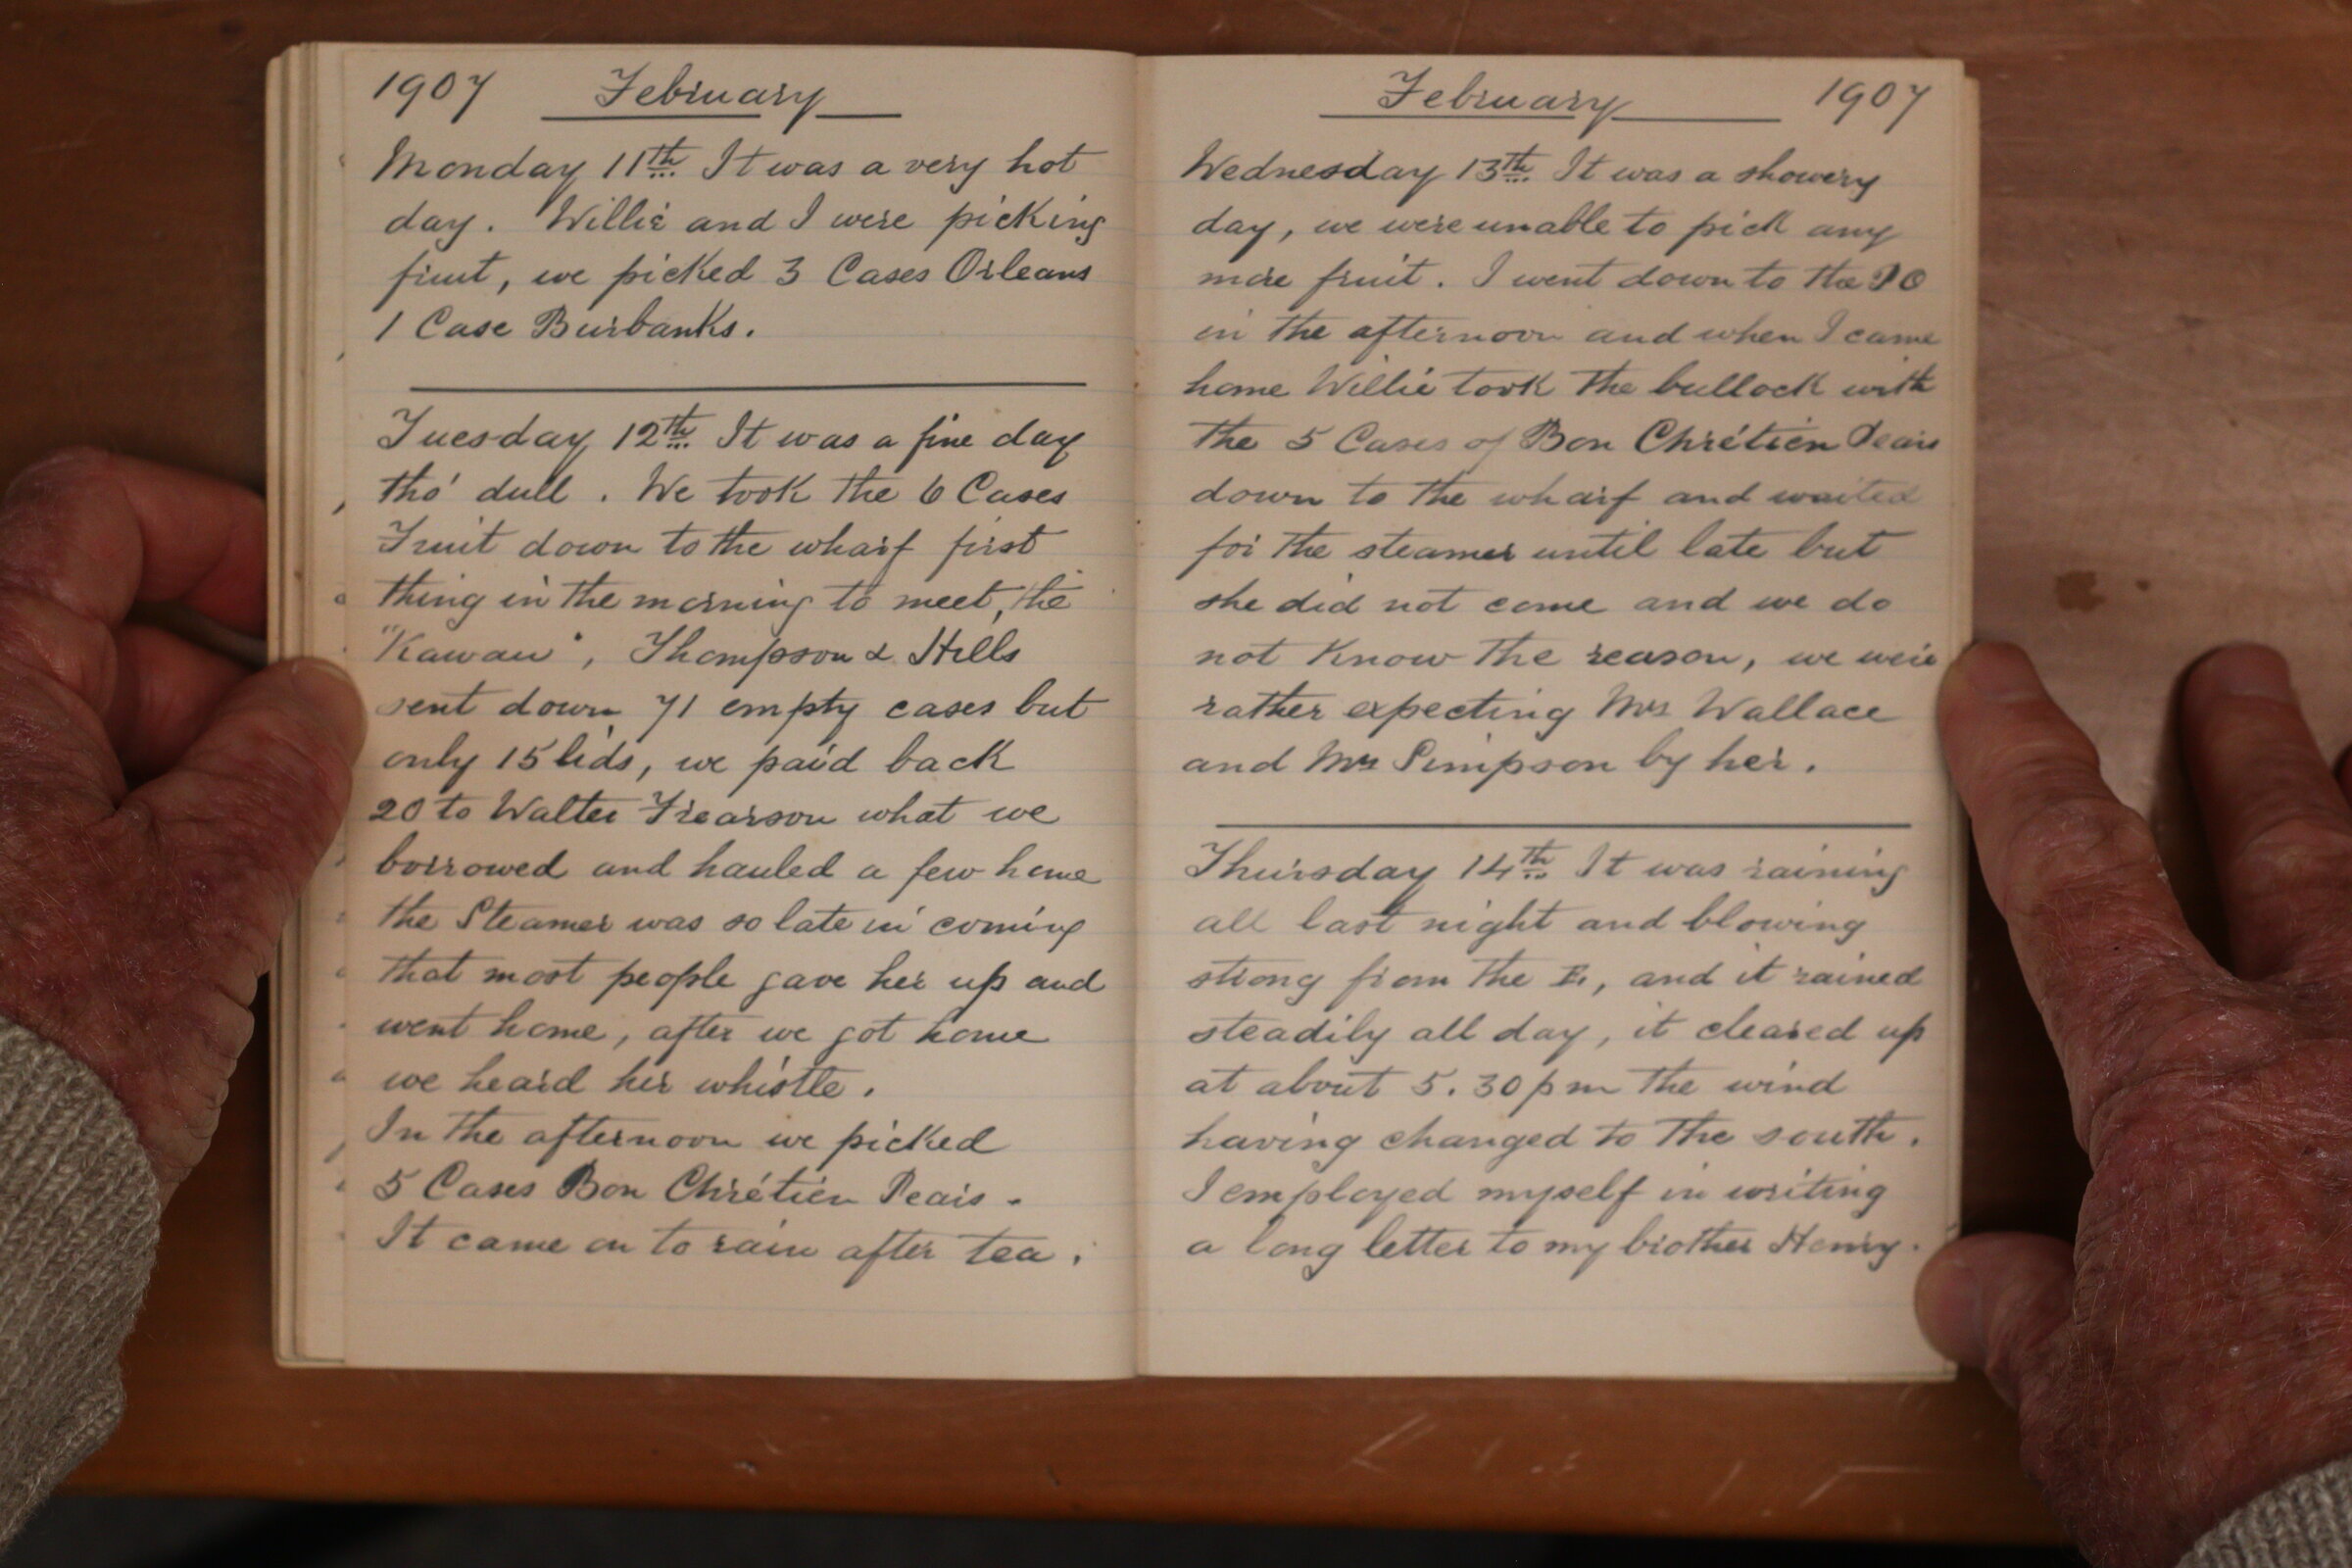 1907 February
Monday 11th It was a very hot
day. Willie and I were picking
fruit, we picked 3 Cases Orleans
1 Case Burbanks.
Tuesday 12th It was a fine day
tho' dull. We took the 6 Cases
Fruit down to the wharf first
thing in the morning to meet, the
"Kawau", Thompson & Hills
sent down 71 empty cases but
only 15 lids, we paid back
20 to Walter Frearson what we
borrowed and hauled a few home
the Steamer was so late in coming
that most people gave her up and
went home, after we got home
we heard her whistle.
In the afternoon we picked
5 Cases Bon Chrétien Pears -
It came on to rain after tea.
February 1907
Wednesday 13th It was a showery
day, we were unable to pick any
more fruit. I went down to the PO
in the afternoon and when I came
home Willie took the bullock with
the 5 Cases of Bon Chrétien Pears
down to the wharf and waited
for the steamer until late but
she did not come and we do
not know the reason, we were
rather expecting Mrs Wallace
and Mrs Simpson by her.
Thursday 14th It was raining
all last night and blowing
strong from the E, and it rained
steadily all day, it cleared up
at about 5.30 pm the wind
having changed to the south.
I employed myself in writing
a long letter to my brother Henry.